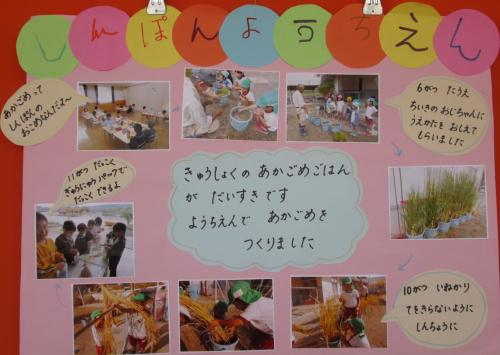 しんぽんようちえん
あかごめって
しんぽんの
おこめなんだよ〜
6がつ たうえ
ちいきの おじちゃんに
うえかたを おしえて
もらいました
11がつ だっこく
ぎゅうにゅうパックで
だっこく できるよ
きゅうしょくの あかごめごはん
が だいすきです
ようちえんで あかごめを
つくりました
10がつ いねかり
てをきらないように
しんちょうに